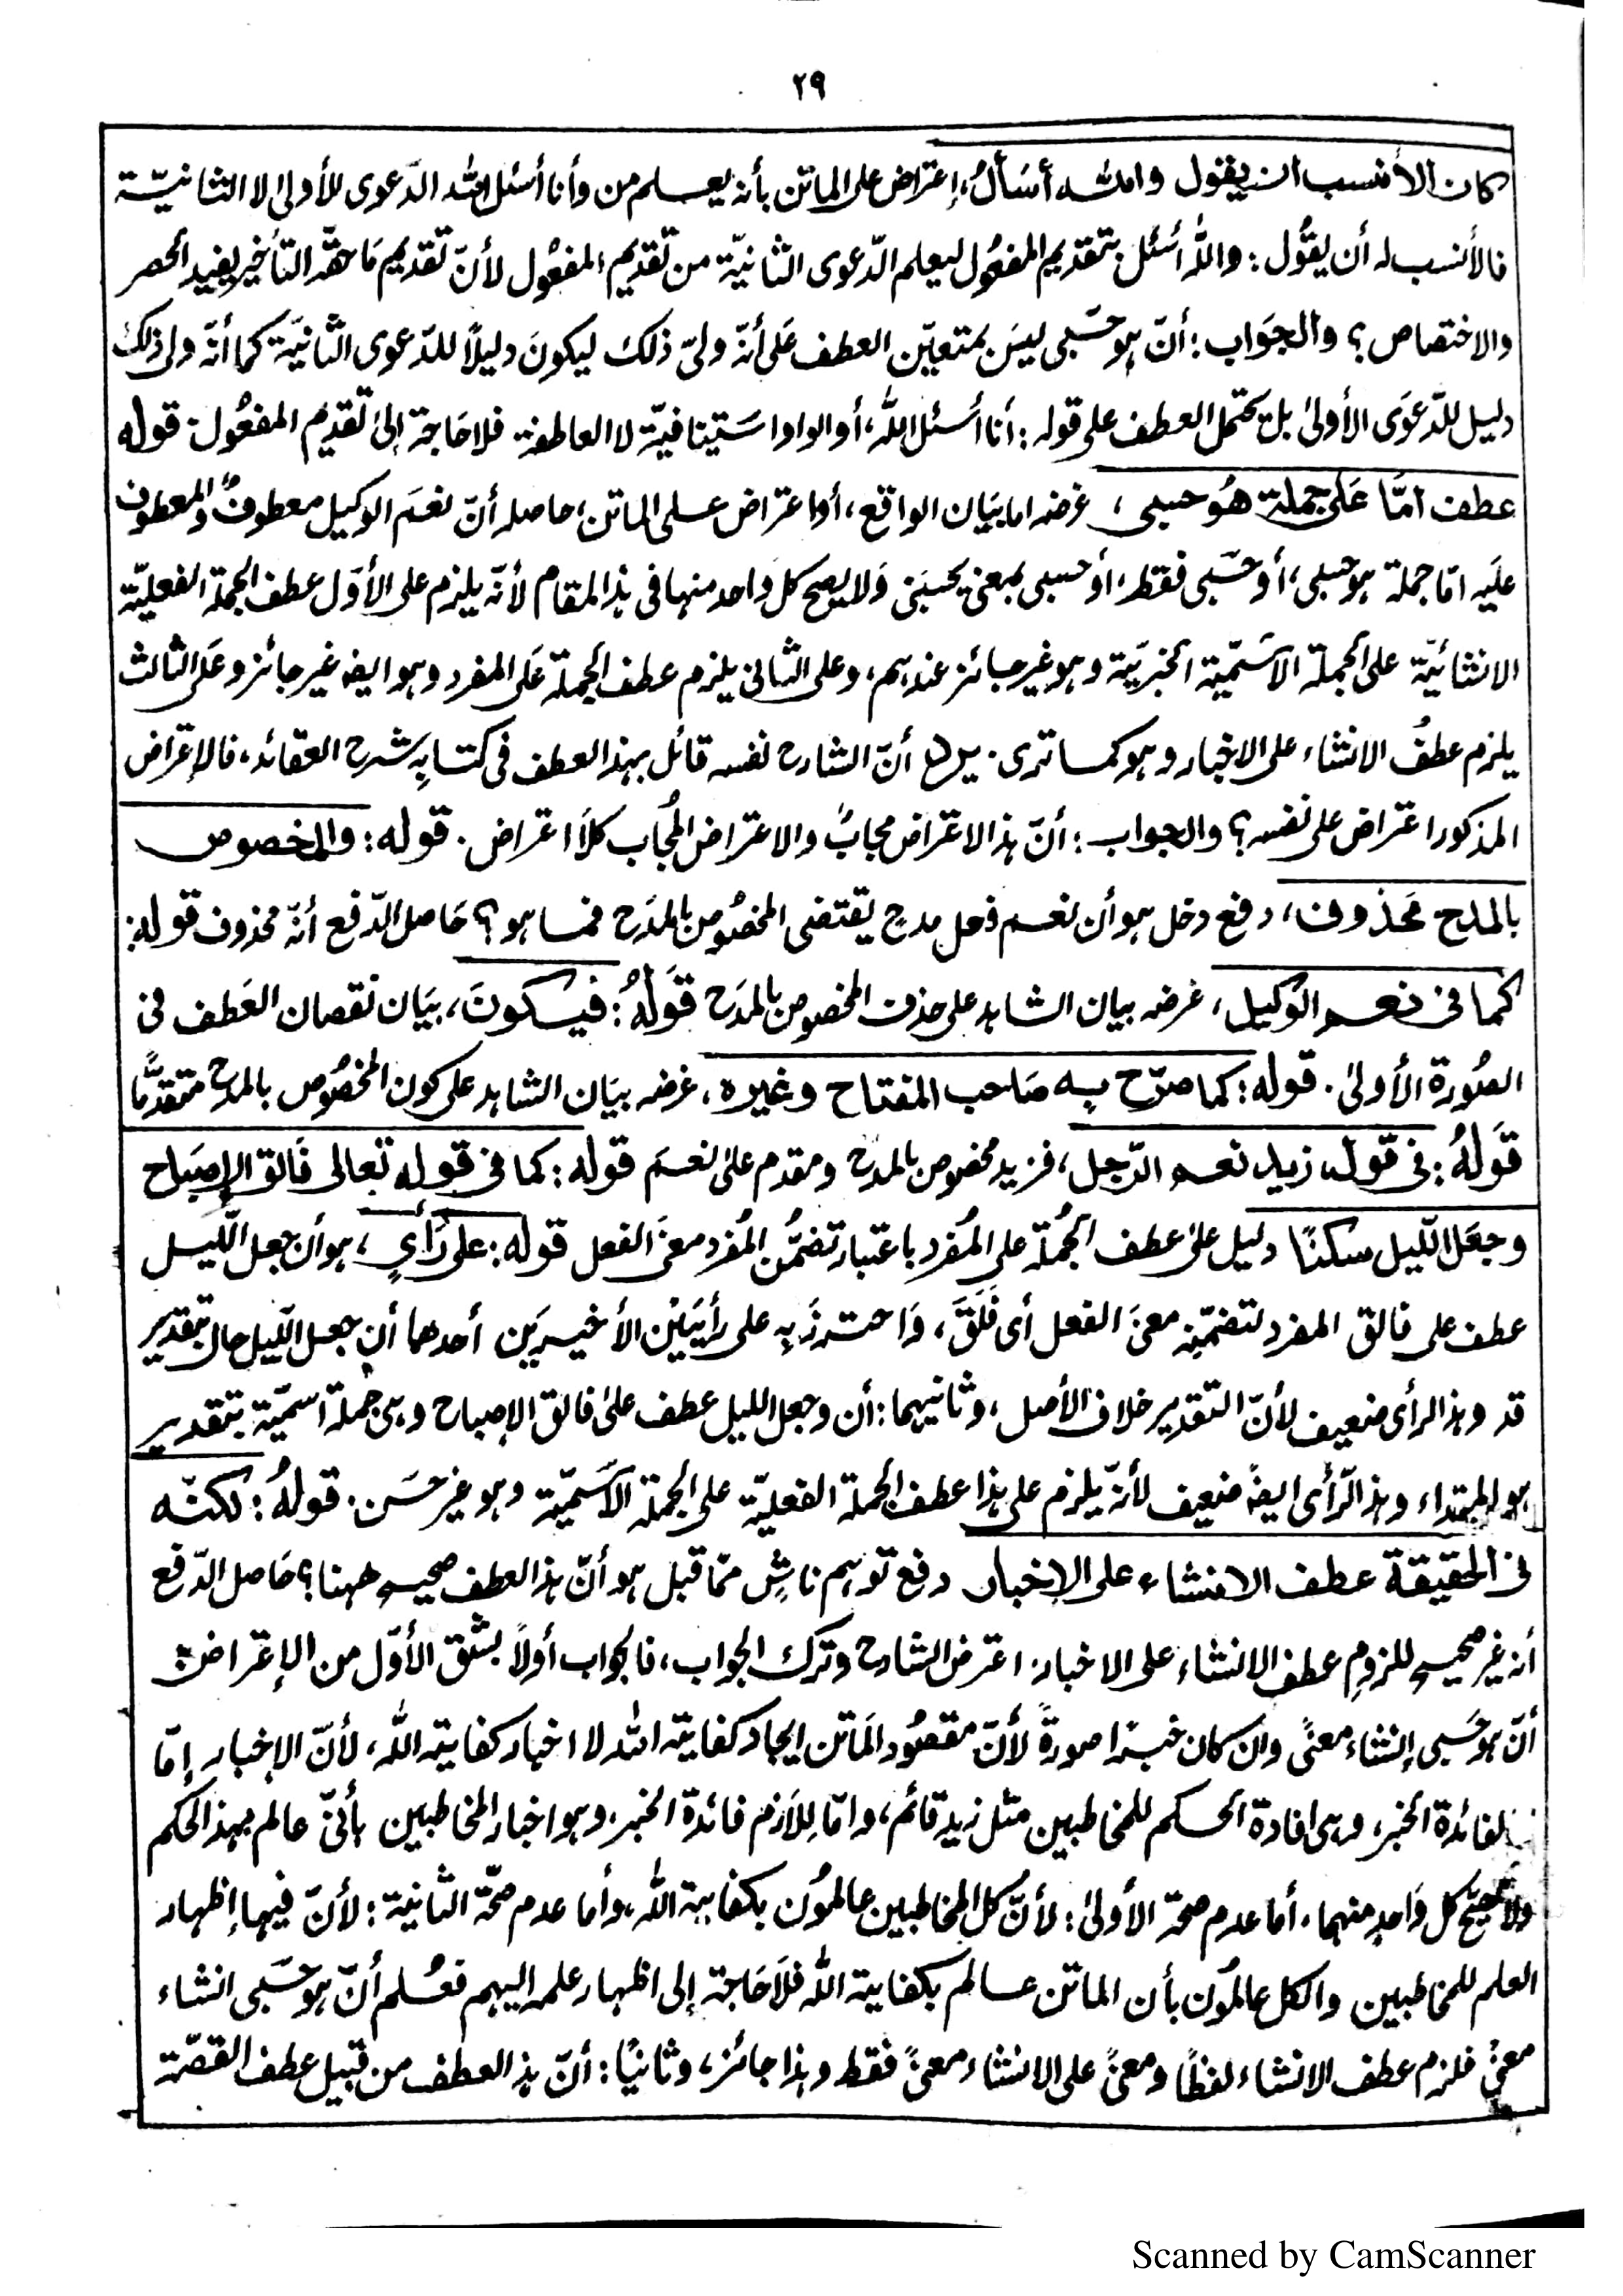 ٢٩
كان الأنسب ان يقول والله أسَألُ، إعتراض على الماتن بأنه يعلم من وأنا أسئل الله الدّعوى للأولىٰ لا الثانيّة
فالأنسب له أن يقُول: والله أسئل بتقديم المفعُول ليعلم الدّعوى الثانيّة من تقديم المفعُول لأنّ تقديم مَا حقّه التأخير يفيد الحصر
والاختصاص؟ والجوَاب: أنّ هو حَسْبى ليسَ بمتعيّن العطف عَلى أنّه ولىّ ذلك ليكونَ دليلاً للدّعوى الثّانيّة كما أنّه ولى ذلك
دليل للدّعوَى الأولىٰ بل يحتمل العطف على قوله: أنا أسئل الله، أو الواو استينافيّة لا العاطفة فلا حَاجة إلىٰ تقديم المفعُول. قوله
عطف امّا عَلى جملة هُو حسبى، غرضه اما بيَان الواقع، أو اعتراض على الماتن، حاصله أنّ نعمَ الوكيل معطوفٌ والمعطوف
علَيه امّا جملة هو حسبى، أو حسْبى فقط، أو حسبى بمعنى يحسبَنى وَلا يصح كل واحد منها فى هذا المقام لأنّه يلزم على الأوّل عطف الجملة الفعليّة
الانشائيّة على الجملة الاسَمّيّة الخبريّة وهو غير جائز عندهم، وعلى الثانى يلزم عطف الجملة عَلى المفرد وهو ايضا غير جائز وعلَى الثالث
يلزم عطفُ الانشاء على الاخبار وهو كما ترى. يرد أنّ الشارح نفسه قائل بهذا العطف فى كتابِه شرح العقائد، فالإعتراض
المذكور اعتراض على نفسه؟ والجواب: أنّ هذا الاعتراض مجابٌ والاعتراض المُجاب كلاَ اعتراض. قوله: والمخصوص
بالمدح مَحذوف، دفع دخل هو أن نعم فعل مدح يقتضى المخصُوص بالمدَح فما هو؟ حَاصل الدّفع أنّه محذوف قوله:
كما فى نعم الوكيل، غرضه بيان الشاهد على حذف المخصوص بالمدَح قَولهُ: فيَكونَ، بيَان نقصان العَطف فى
الصُورة الأولىٰ. قوله: كما صرّح به صَاحب المفتاح وغيره، غرضه بيَان الشاهد على كون المخصُوص بالمدح متقدّمًا
قَولهُ: فى قولهِ زيد نعم الرّجل، فزيد مخصوص بالمدح ومقدم علىٰ نعمَ قوله: كما فى قوله تعالى فَالق الإصبَاح
وجعَل اللّيل سكنًا دليل علىٰ عطف الجُملة على المُفرد باعتبار تضمُّن المُفرد معنَى الفعل قوله: على رَأىٍ، هو أن جعل اللّيل
عطف على فالق المفرد لتضمّنِه معنىَ الفعل أى فَلَقَ، وَاحترزَ بِه على رأيَيْن الأخيرَين أحدهما أن جعل اللّيل حال بتقدير
قد وهذا الرأى ضعيف لأنّ التقدير خلاف الأصل، وثانيهما: أن وجعل الليل عطف علىٰ فالق الإصباح وهى جملة اسميّة بتقدير
هو المبتداء وهذا الرّأى ايضاً ضعيف لأنّه يلزم على هذا عطف الجملة الفعليّة على الجملة الاَسميّة وهو غير حسَن. قولهُ: لكنّه
فى الحقيقة عطف الانشاء على الإخبار دفع توهم ناشٍ ممّا قبل هو أنّ هذا العطف صحيح ههنا؟ حَاصل الدّفع
أنه غير صحيح للزومِ عطف الانشاء على الاخبار. اعترض الشارح وترك الجواب، فالجواب أولاً بشق الأوّل من الإعتراض:
أنّ هو حَسبى إنشاء معنًى وان كان خبرًا صورةً لأنّ مقصُود المَاتن ايجاد كفاية الله لا اخبار كفاية الله، لأنّ الإخبار إمّا
لفائدة الخبر، وهى افادة الحكم للمخاطبين مثل زيد قائم، وامّا لِلاَزم فائدة الخبر. وهو اخبار المخاطبين بأنّى عالم بهذا الحكم
ولا يصحّ كل وَاحدٍ منهما. أما عدم صحّة الأولىٰ: لأنَّ كل المخاطبين عالمُون بكفاية الله، وأما عدم صحّة الثانية: لأنّ فيها إظهار
العلم للمخاطبين والكل عالمُون بأن الماتن عالم بكفاية الله فلاَ حَاجة إلى اظهار علمه اليهم فعُلم أنّ هو حَسْبى انشاء
معنًى فلزم عطف الانشاء لفظًا ومعنًى على الانشاء معنًى فقط وهذا جائز، وثانيًا: أنّ هذا العطف من قبيل عطف القصّة
Scanned by CamScanner